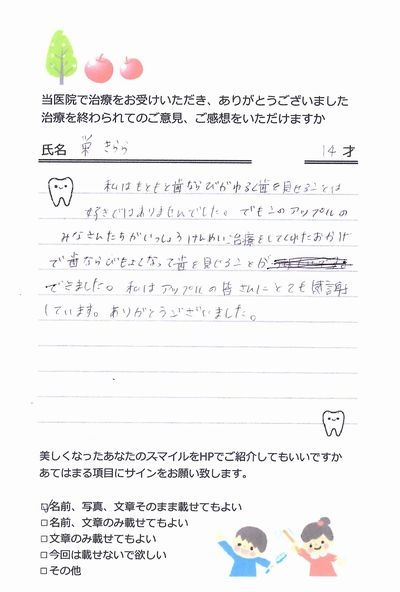 当医院で治療をお受けいただき、ありがとうございました
治療を終わられてのご意見、ご感想をいただけますか
氏名 きらら 14 才
私はもともと歯ならびがわるく歯を見せることは
好きではありませんでした。でもこのアップルの
みなさんたちがいっしょうけんめい治療をしてくれたおかげ
で歯ならびもよくなって歯を見せることが
できました。私はアップルの皆さんにとても感謝
しています。ありがとうございました。
美しくなったあなたのスマイルをHPでご紹介してもいいですか
あてはまる項目にサインをお願い致します。
☑名前、写真、文章そのまま載せてもよい
□名前、文章のみ載せてもよい
□文章のみ載せてもよい
□今回は載せないで欲しい
□その他